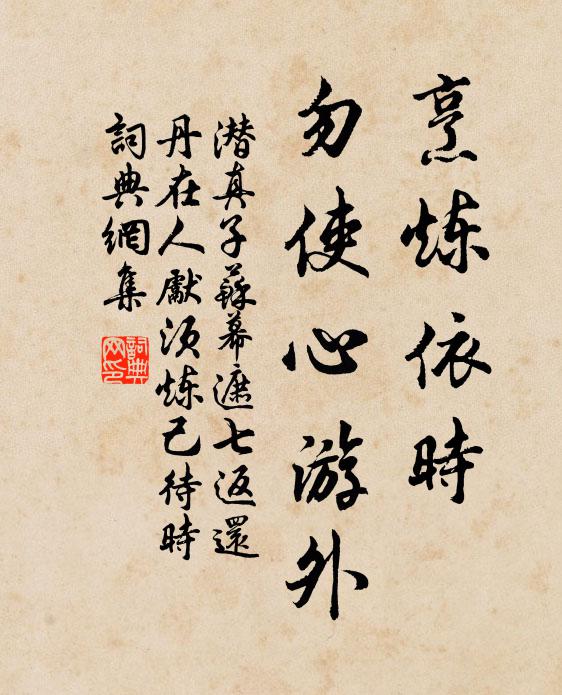 烹炼依時
勿使心游外
潛真子蘇幕遮七返還
丹在人獻須炼己待時
詞典網集
詞典
网印